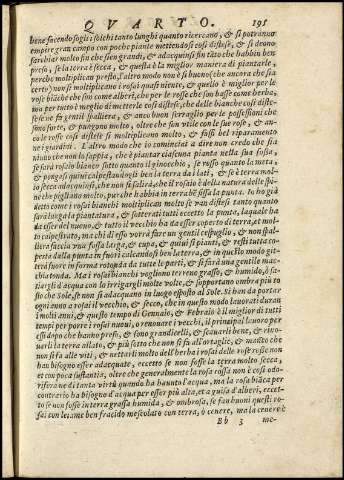 QVARTO. 195
bene facendo sogli i solchi tanto lunghi quanto ricercano, & si potranno
empere gran campo con poche piante mettendosi così distese, & si deono
sarchiar molto fin che sien grandi, & adacquinsi fin tãto che habbin ben
preso, se la terra è secca, & questa è la miglior maniera di piantarle,
perche multiplican presto, l'altro modo non è si buono (che ancora che sia
certo) non si moltiplicano i rosai quasi niente, & quello è miglior per le
rose biãche che son come alberi, che per le rosse che son basse come herba,
ma per tutte è meglio di metterle così distese, che delle bianche così diste-
se ne fu gentil spalliera, & anco buon serraglio per le possessioni che
sono forti, & pungono molto, oltre che son utile con le sue rose, & an-
cole rosse così distese si moltiplicano molto, & fossi bel riparamento
ne i giardini. L'altro modo che io comincai a dire non credo che sia
niuno che non lo sappia, che è piantar ciascuna pianta nella sua fossa,
se sarà rosaio bianco fatto quanto il ginocchio, se rosso quanto la meta,
& pongasi quini calpestandogli ben la terra da i lati, & se la terra è mol-
to secca adacquinsi, che non si fallirà, che il rosaio è della natura delle spi-
ne che pigliano molto, pur che habbia in terra bẽ fissa la punta. Io ho già
detto come i rosai bianchi moltiplican molto se van distesi tanto quanto
sarà lunga la piantatura, & sotterati tutti eccetto la punta, laquale ha
da esser del nuouo, & tutto il vecchio ha da esser coperto di terra, et mol-
to calpestrato, ma chi di esso vorrà fare un gentil cespuglio, & non spal-
liera faccia vna fossa larga, & cupa, & quini si pianti, & resti tutta co-
perta dalla punta in fuori calcandosi ben la terra, & in questo modo git-
terà fuori in forma rotonda da tutte le parti, & si farà una gentile mac-
chia tonda. Ma i rosai bianchi vogliono terreno grasso, & humido, & sa-
tiargli d'acqua con lo irrigargli molte volte, & sopportano ombra più to
sto che Sole, se non si adacquano in luogo opposto al Sole. Si han da portar
ogni anno a rosai il vecchio, & secco, che in questo modo lauorati duran
i molti anni, & questo tempo di Gennaio, & Febraio è il miglior di tutti
tempi per porre i rosai nuoui, o renouare i vecchi, il principal lauoro per
essi dopo che hanno preso, & sono grandicelli, & scauarli bene, & rino-
uarli la terra allato, & più sotto che non si fu all'ortaglie, & manco che
non si fà alle viti, & nettarli molto dell'herba i rosai delle rose rosse non
han bisogno esser adacquate, eccetto se non fosse la terra molto secca,
et con poca sustantia, oltre che generalmente la rosa rossa non è così odo-
rifera ne di tanta virtù quando ha hauuto l'acqua, ma la rosa biãca per
contrario ha bisogno d'acqua per esser più alta, et a guisa d'alberi, eccet-
to se non fosse in terra grassa humida, & ombrosa, se sia huon questi ro-
sai con letame ben fracido mescolato con terra, ò cenere, ma la cenere è
Bb 3 me-